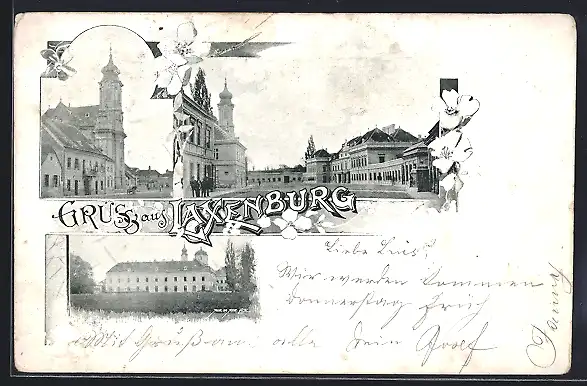 GRUSS aus LAXENBURG
Liebe
Wir werden kommen
Donnerstag früh
Mit Gruß an alle dein Josef
Fanny